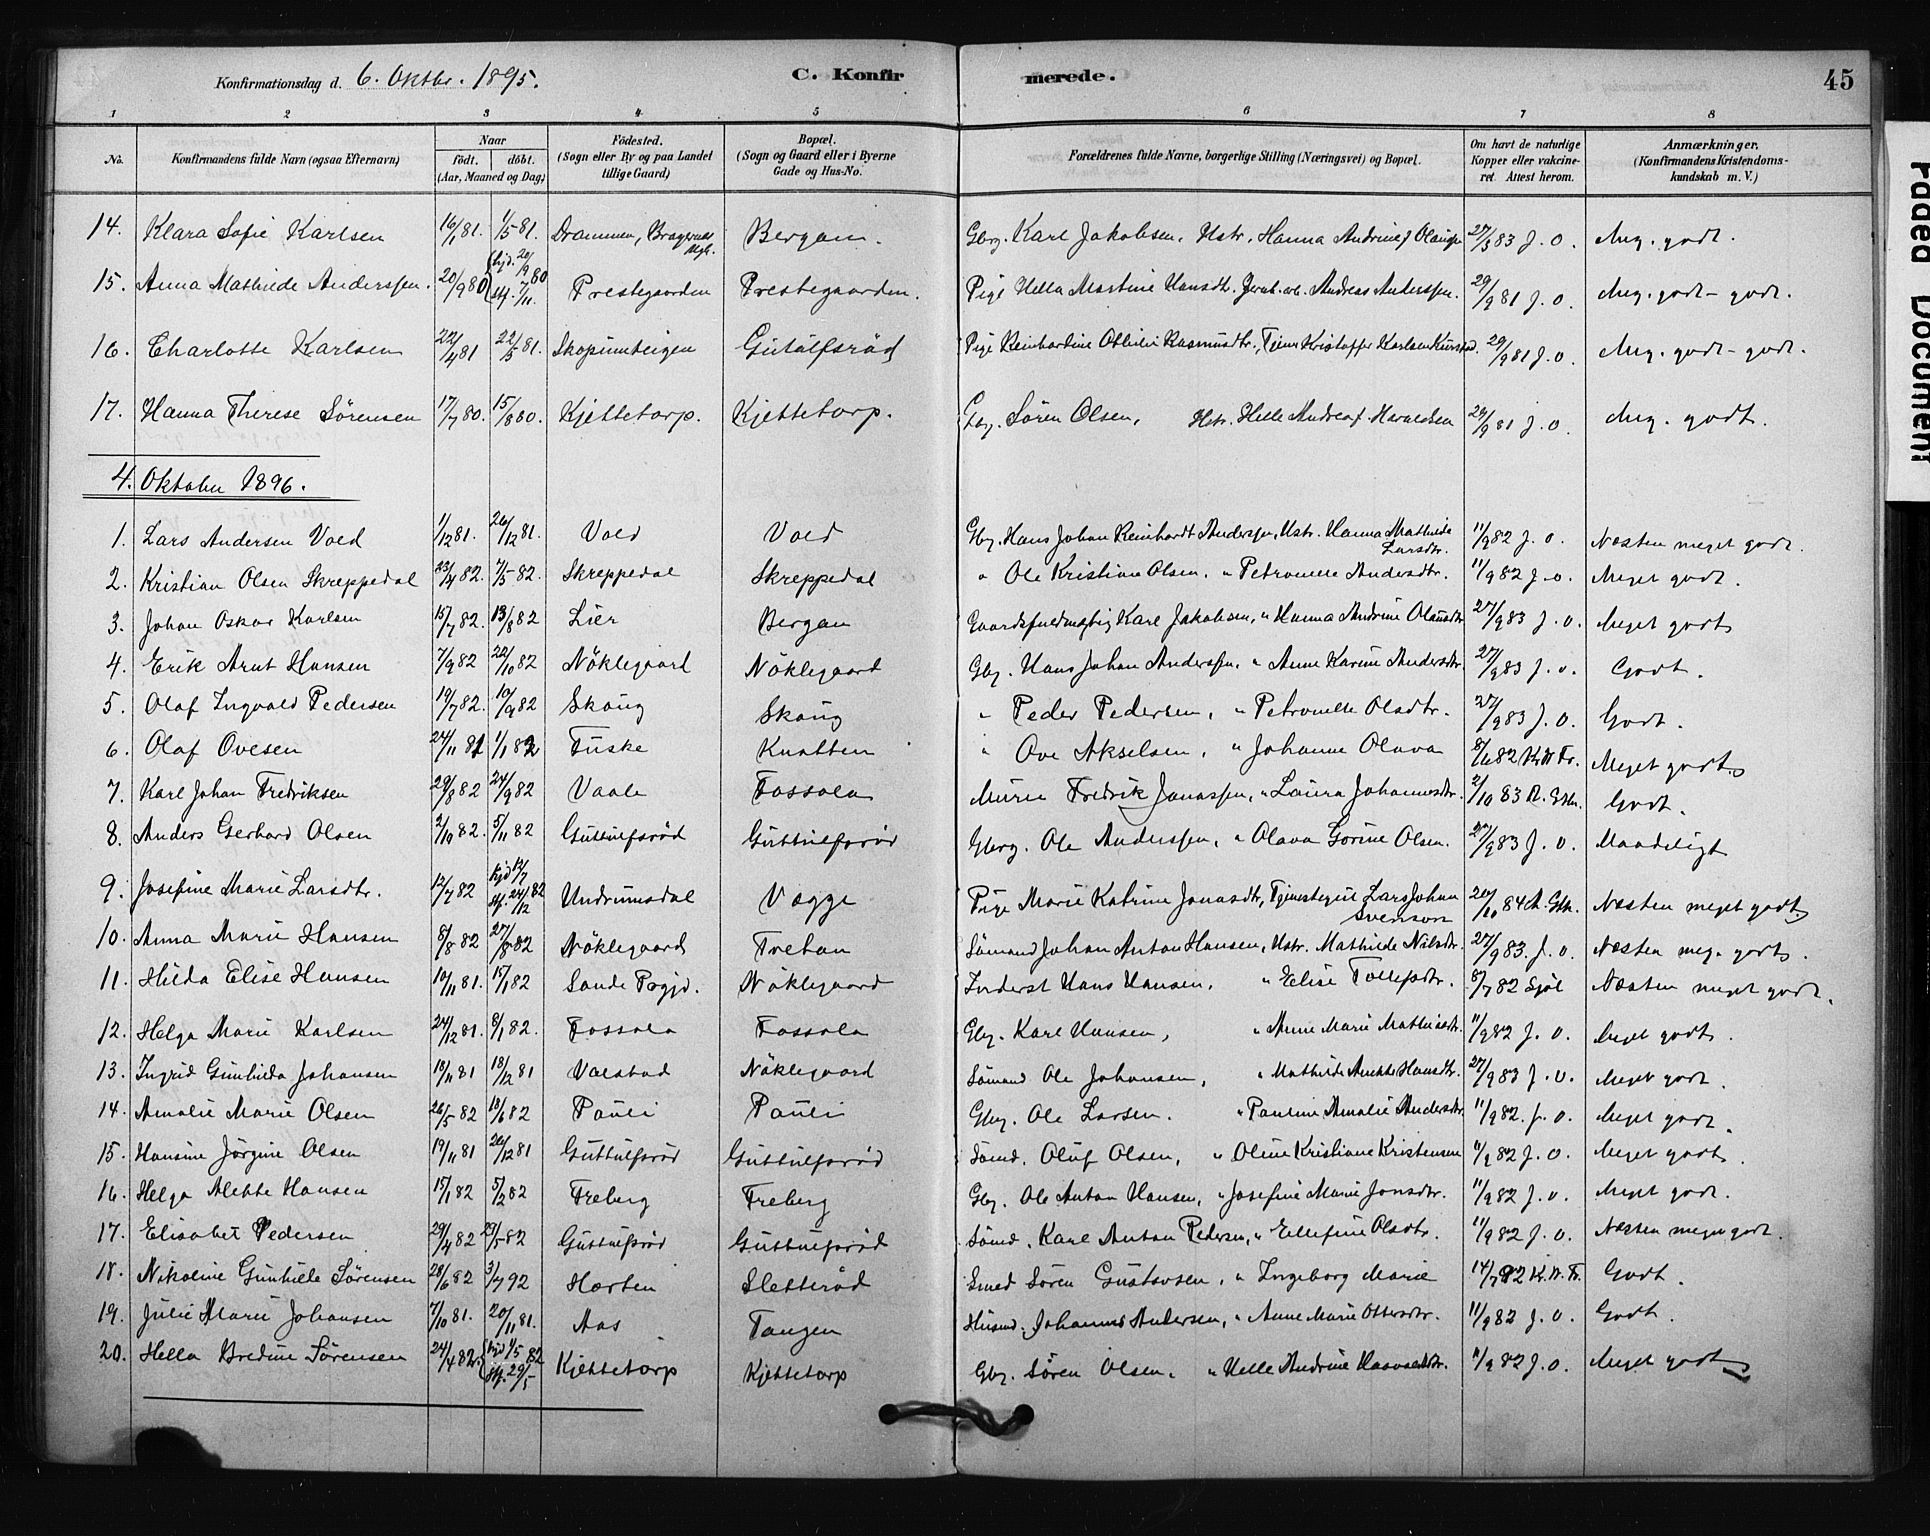 Konfirmationsdag d. 6. Oktbr. 1895.
C. Konfirmerede.
45
1 2 3 4 5 6 7 8
No. Konfirmandens fulde Navn (ogsaa Efternavn) Naar født. døbt. (Aar, Maaned og Dag) Fødested. (Sogn eller By og paa Landet tillige Gaard) Bopæl. (Sogn og Gaard eller i Byerne Gade og Hus-No.) Forældrenes fulde Navne, borgerlige Stilling (Næringsvei) og Bopæl. Om havt de naturlige Kopper eller vakcineret. Attest herom. Anmærkninger. (Konfirmandens Kristendomskundskab m. V.)
14. Klara Sofie Karlsen 16/1 81. 1/5 81. Drammen, Bragernes Bergan. Gbrg. Karl Jakobsen, Hstr. Hanna Andrine 27/9 83 J. O. Meg. godt.
15. Anna Mathilde Anderssen. 20/9 80 hjd. 20/9 80 stf. 7/11. Prestegaarden Prestegaarden. Pige Hella Martine Hansdtr. Andreas Anderssen. 29/9 81 J. O. Meg. godt - godt.
16. Charlotte Karlsen 22/4 81 22/5 81. Skopumteigen Gutulfsrød Pige Reinhardine Othilie Rasmusdtr., Tjener Kristoffer Karlsen 29/9 81 J. O. Meg. godt - godt.
17. Hanna Therese Sørensen 17/7 80. 15/8 80. Kjettetorp. Kjettetorp. Gbrg. Søren Olsen, Hstr. Helle Andrea Haraldsen 29/9 81 J. O. Meg. godt.
4. Oktober 1896.
1. Lars Andersen Vold 1/12 81. 26/12 81. Vold Vold Gbr. Hans Johan Reinhardt Anderssen, Hstr. Hanna Mathilde Larsdtr. 11/9 82 J. O. Næsten meget godt.
2. Kristian Olsen Skreppedal 23/4 82. 7/5 82. Skreppedal Skreppedal " Ole Kristian Olsen, " Petronelle Andersdtr. 11/9 82 J. O. Meget godt.
3. Johan Oskar Karlsen 15/7 82. 13/8 82 Lier Bergan Gaardsfuldmægtig Karl Jakobsen, " Hanna Andrine Olausdtr 27/9 83 J. O. Meget godt
4. Erik Arnt Hansen 7/9 82 22/10 82 Nøklegaard Nøklegaard Gbr. Hans Johan Anderssen, " Anne Karine Andersdtr. 27/9 83 J. O. Godt.
5. Olaf Ingvald Pedersen 19/7 82. 10/9 82 Skoug Skoug " Peder Pedersen, " Petronelle Olsdtr. 27/9 83 J. O. Godt.
6. Olaf Ovesen 24/11 81 1/1 82 Fuske Knatten " Ove Akselsen, " Johanne Olava 8/6 82 K. W. Fr. Meget godt
7. Karl Johan Fredriksen 29/8 82 24/9 82 Vaale Fossola Murer Fredrik Jonassen, " Laura Johannesdtr. 2/10 83 R. Gthr. Godt.
8. Anders Gerhard Olsen 2/10 82. 5/11 82 Guttulfsrød Guttulfsrød Gbrg. Ole Anderssen, " Olava Gorine Olsen. 27/9 83 J. O. Maadeligt
9. Josefine Marie Larsdtr. 12/7 82 hjd 13/7 stf. 24/12 82 Undrumsdal Vagge Pige Marie Katrine Jonasdtr, Tjenstegut Lars Johan Svenson 20/10 84 A. Gthr. Næsten meget godt
10. Anna Marie Hansen 8/8 82 27/8 82 Nøklegaard Fretan Sømand Johan Anton Hansen, Hstr. Mathilde Nilsdtr. 27/9 83. J. O. Næsten meg. godt.
11. Hilda Elise Hansen 10/11 81. 15/1 82 Sande Prgjd. Nøklegaard Inderst Hans Hansen, " Elise Tollefsdtr. 8/7 82 Sjøl Næsten meget godt.
12. Helga Marie Karlsen 24/12 81. 8/1 82. Fossola Fossola Gbr. Karl Hansen, " Anne Marie Mathiasdtr. 11/9 82 J. O. Meget godt.
13. Ingrid Gunhilda Johansen 18/11 81 18/12 81 Valstad Nøklegaard Sømand Ole Johansen, " Mathilde Anette Hansdtr. 27/9 83 J. O. Meget godt.
14. Amalie Marie Olsen 26/5 82 18/6 82 Pauli Pauli Gbr. Ole Larsen. " Pauline Amalie Andersdtr 11/9 82. J. O. Meget godt.
15. Hansine Jørgine Olsen 19/11 81 26/12 81 Guttulfsrød Guttulfsrød Sømd. Oluf Olsen, " Oline Kristiane Kristensen 11/9 82 J. O. Meget godt.
16. Helga Alette Hansen 15/1 82 5/2 82 Freberg Freberg Gbr. Ole Anton Hansen, " Josefine Marie Jonsdtr. 11/9 82 J. O. Meget godt.
17. Elisabet Pedersen 29/4 82 29/5 82 Guttulfsrød Guttulfsrød Sømd. Karl Anton Pedersen, " Ellefine Olsdtr. 11/9 82 J. O. Næsten meget godt.
18. Nikoline Gunhilde Sørensen 28/6 82 3/7 92 Horten Sletterød Smed Søren Gustavsen, " Ingeborg Marie 14/7 82 K. W. Fr. Godt.
19. Julie Marie Johansen 7/10 81. 20/11 81. Aas Tangen Husmd. Johannes Andersen, " Anne Marie Ottersdtr. 11/9 82 J. O. Godt.
20. Hella Bredine Sørensen 24/4 82. hjd 1/5 82 stf. 29/5 Kjettetorp Kjettetorp Gbr. Søren Olsen, " Helle Andrine Haavaldsdtr. 11/9 82 J. O. Meget godt
Faded Document